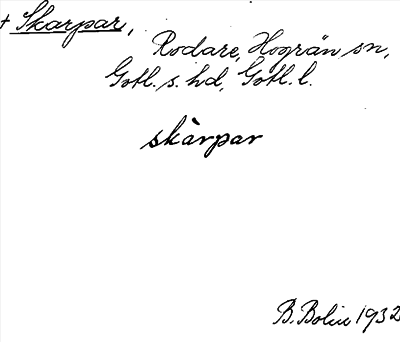 + Skarpar,
Rodare, Hogrän sn,
Gotl. s. hd, Gotl. l.
skàrpar
B. Bolin 1932